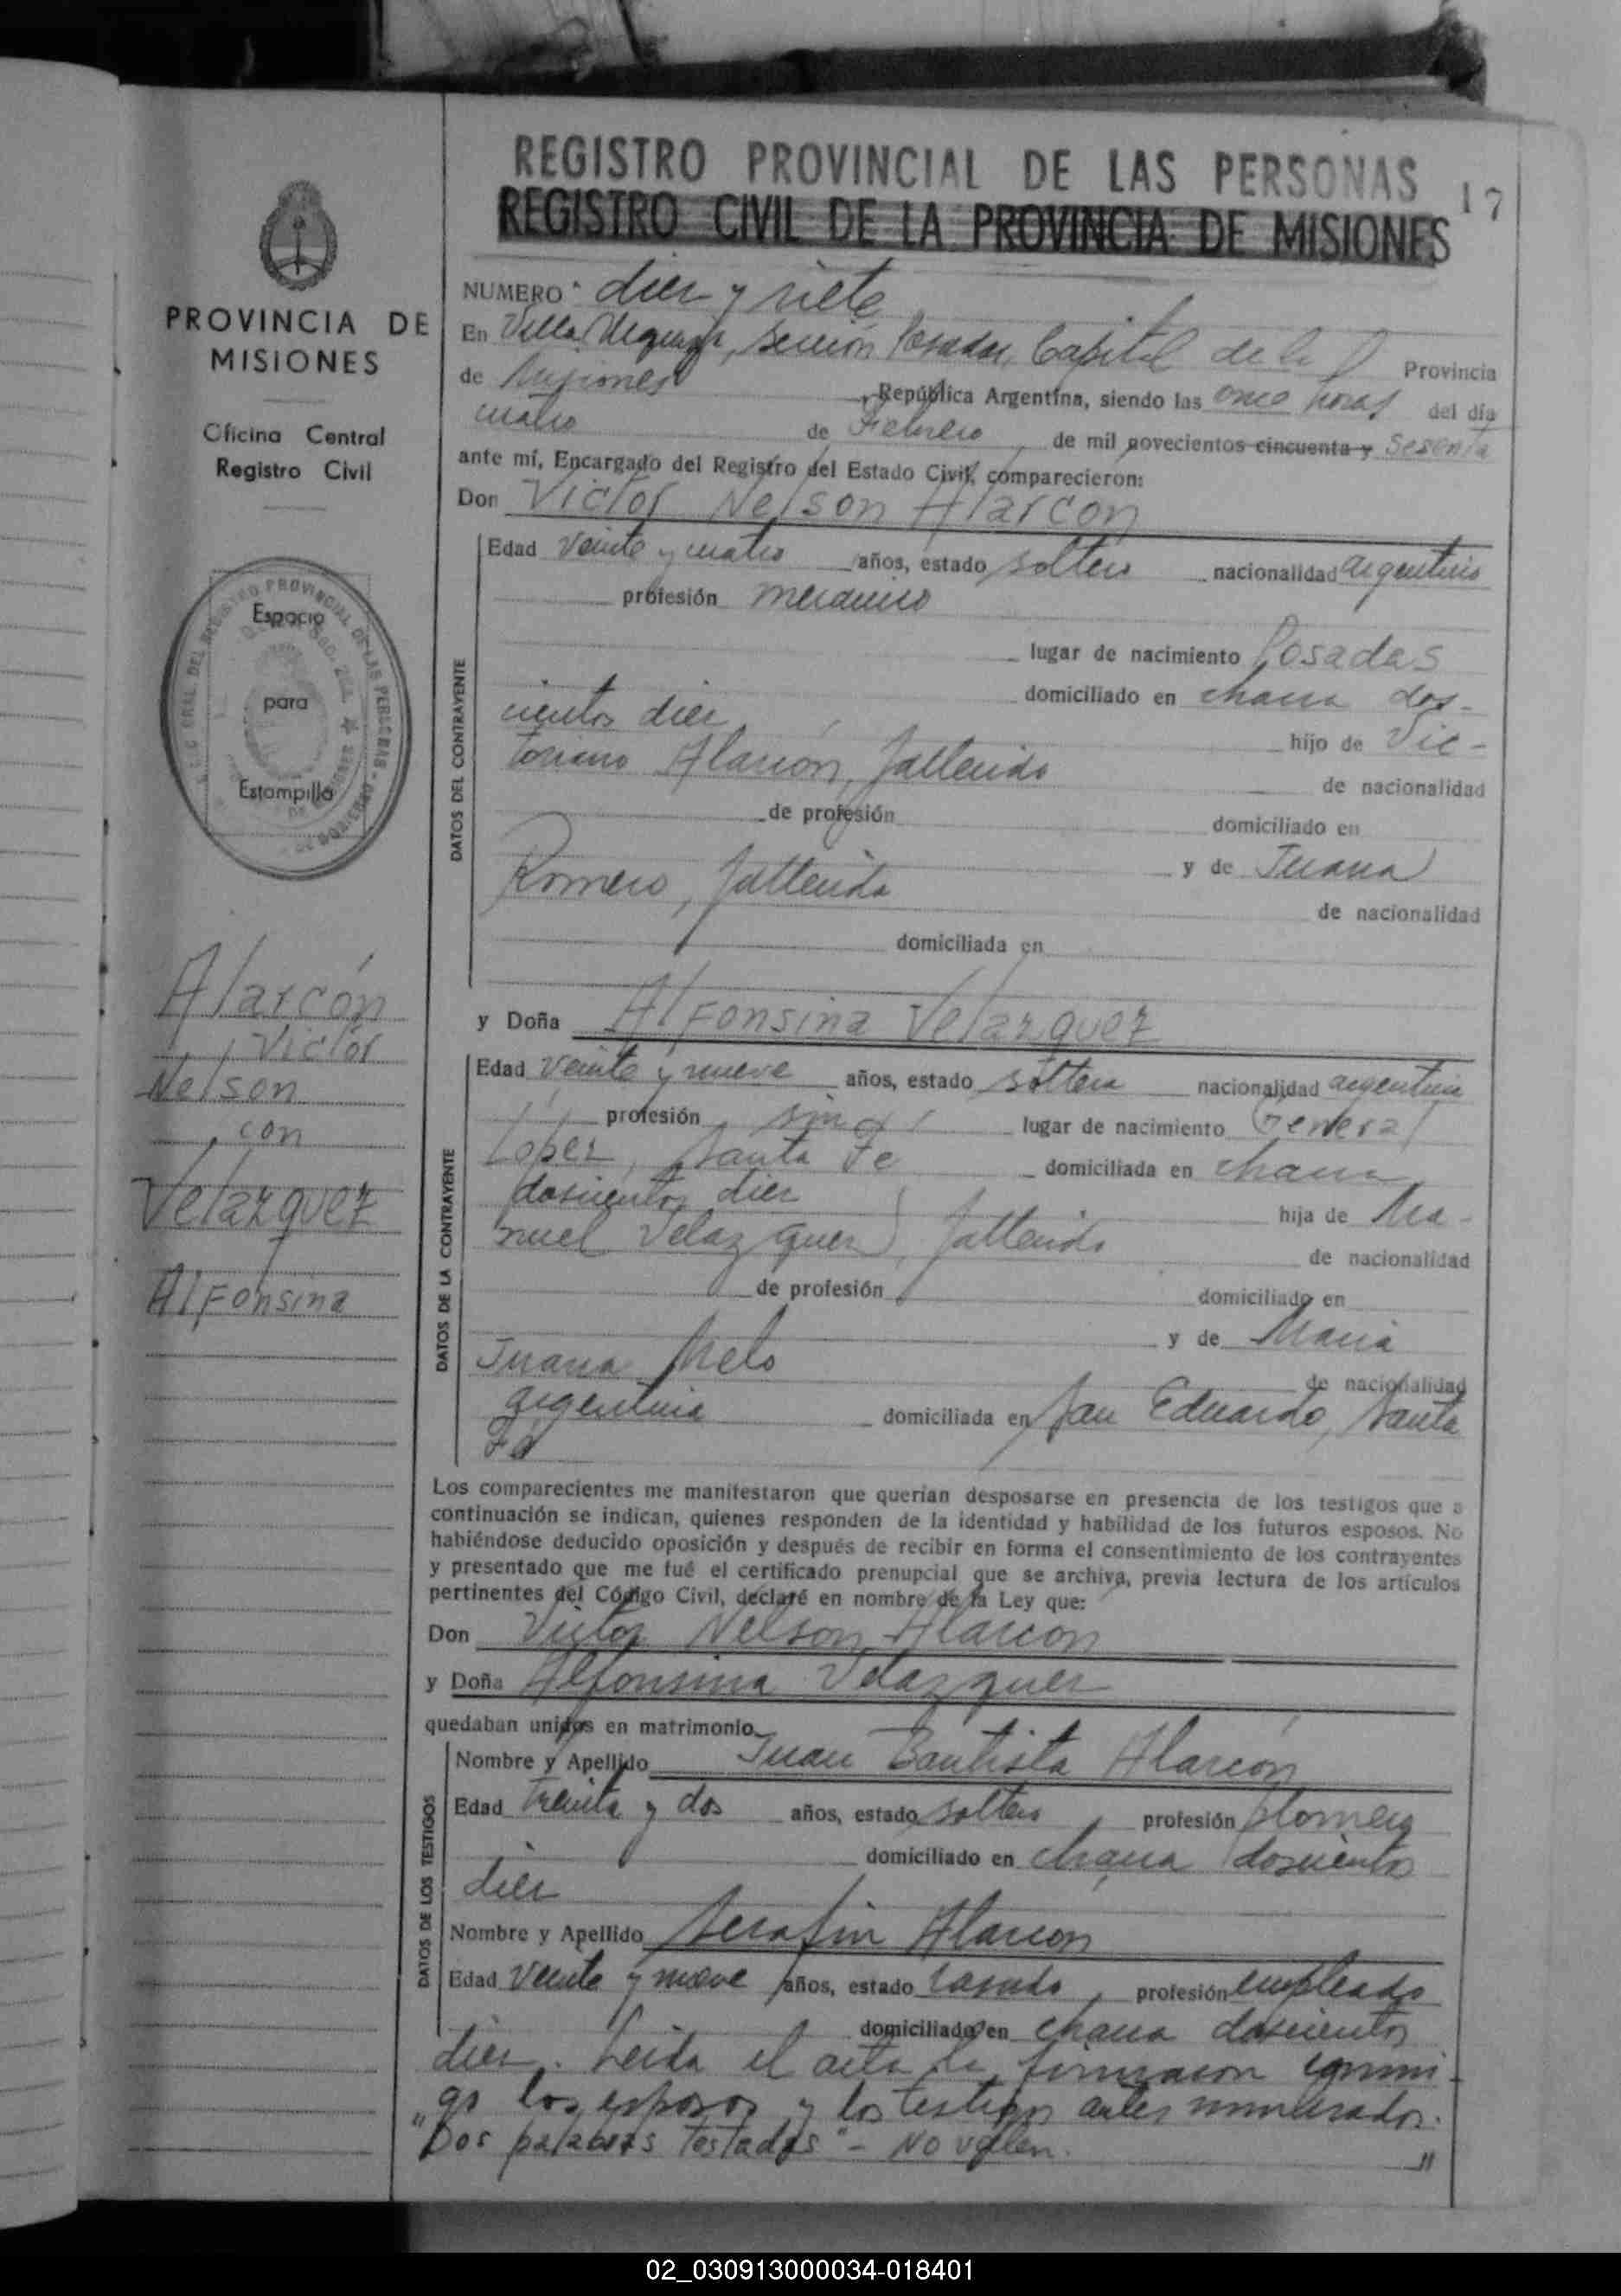 REGISTRO PROVINCIAL DE LAS PERSONAS
17
REGISTRO CIVIL DE LA PROVINCIA DE MISIONES
PROVINCIA DE
MISIONES
Oficina Central
Registro Civil
Espacio
para
Estampilla
Alarcón
Victor
Nelson
con
Velazquez
Alfonsina
NUMERO diez y siete
En Villa Urquiza, sección Posadas, Capital de la Provincia
de Misiones, República Argentina, siendo las once horas del día
cuatro de Febrero, de mil novecientos cincuenta y sesenta
ante mí, Encargado del Registro del Estado Civil, comparecieron:
Don Victor Nelson Alarcon
DATOS DEL CONTRAYENTE
Edad veinte y cuatro años, estado soltero nacionalidad argentino
profesión mecanico
lugar de nacimiento Posadas
domiciliado en chaca dos-
cientos diez hijo de Vic-
toriano Alarcón, fallecido de nacionalidad
de profesión domiciliado en
y de Juana
Romero, fallecida de nacionalidad
domiciliada en
y Doña Alfonsina Velazquez
DATOS DE LA CONTRAYENTE
Edad veinte y nueve años, estado soltera nacionalidad argentina
profesión sin lugar de nacimiento General
Lopez, Santa Fe domiciliada en chaca
doscientos diez hija de Ma-
nuel Velazquez, fallecido de nacionalidad
de profesión domiciliado en
y de Maria
Juana Melo de nacionalidad
argentina domiciliada en San Eduardo, Santa
Fé
Los comparecientes me manifestaron que querían desposarse en presencia de los testigos que a
continuación se indican, quienes responden de la identidad y habilidad de los futuros esposos. No
habiéndose deducido oposición y después de recibir en forma el consentimiento de los contrayentes
y presentado que me fué el certificado prenupcial que se archiva, previa lectura de los artículos
pertinentes del Código Civil, declaré en nombre de la Ley que:
Don Victor Nelson Alarcon
y Doña Alfonsina Velazquez
quedaban unidos en matrimonio
DATOS DE LOS TESTIGOS
Nombre y Apellido Juan Bautista Alarcón
Edad treinta y dos años, estado soltero, profesión plomero
domiciliado en chaca doscientos
diez
Nombre y Apellido Serafin Alarcon
Edad veinte y nueve años, estado casado, profesión empleado
domiciliado en chaca doscientos
diez. Leida el acta la firmaron conmi-
go los esposos y los testigos antes nombrados.
"Dos palabras testadas" - No valen. "
02_030913000034-018401